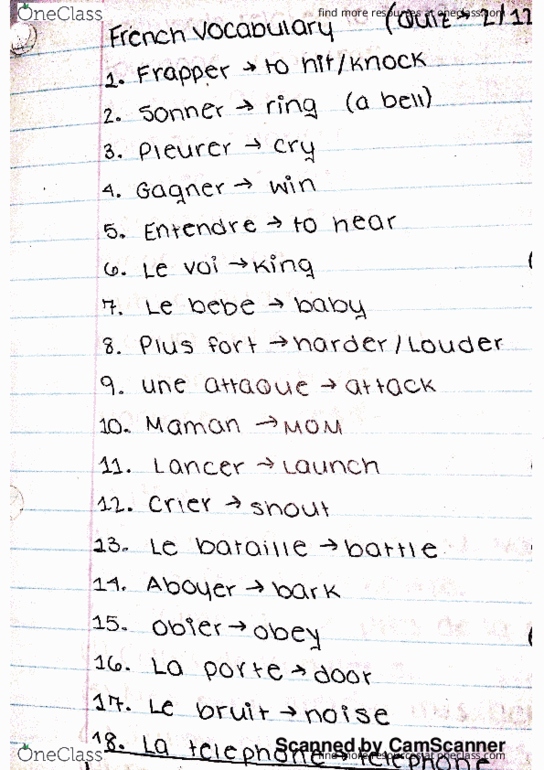 OneClass
find more resources at oneclass.com
French Vocabulary
1. Frapper → to hit/knock
2. Sonner → ring (a bell)
3. Pleurer → cry
4. Gagner → win
5. Entendre → to hear
6. Le voi → King
7. Le bebe → baby
8. Plus fort → harder/Louder
9. une attaque → attack
10. Maman → MOM
11. Lancer → Launch
12. Crier → shout
13. Le bataille → battle
14. Aboyer → bark
15. obier → obey
16. La porte → door
17. Le bruit → noise
18. La telephone → telephone
Scanned by CamScanner
OneClass
find more resources at oneclass.com